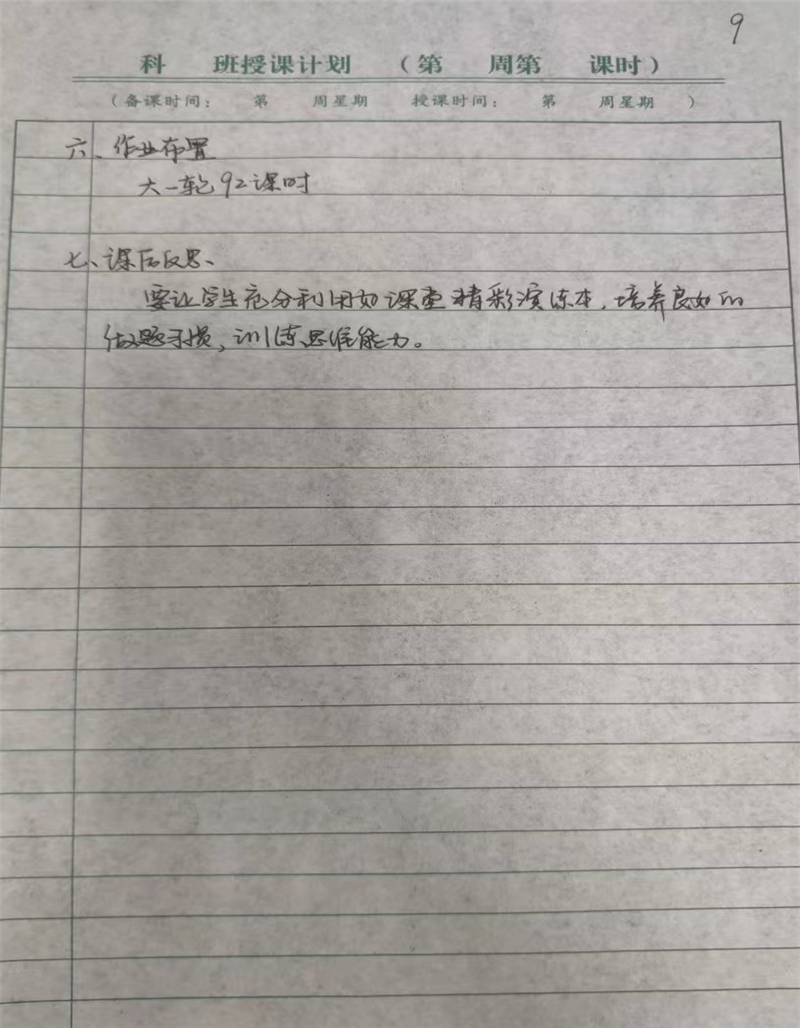 9
科 班授课计划 (第 周第 课时)
(备课时间: 第 周星期 授课时间: 第 周星期 )
六、作业布置
大一轮92课时
七、课后反思、
要让学生充分利用好课堂精彩演练本,培养良好的
做题习惯,训练思维能力。